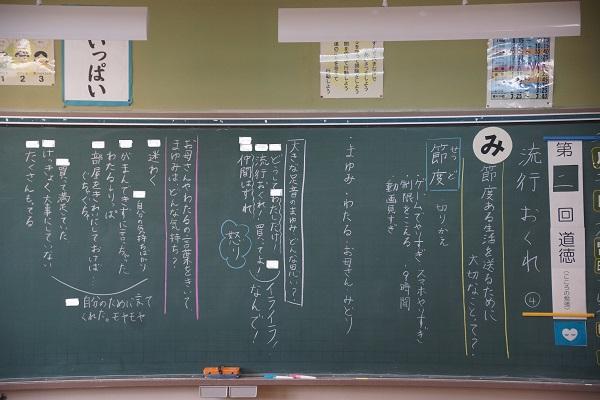 第二回道徳
(こころの勉強)
流行おくれ ④
み
節度ある生活を送るために
大切なことって?
せつど
節度 切りかえ
ゲームやりすぎ スマホやりすぎ
制限をこえる
動画見すぎ
・まゆみ・わたる・お母さん みどり
大きな足音のまゆみ どんな思い?
どうしてわたしだけ!
流行おくれ!買ってよ!
仲間はずれ
イライラ!
なんで!
怒り
お母さんやわたるの言葉をきいて
まゆみはどんな気持ち?
迷わく
自分の気持ちばかり
がまんできずに言っちゃった
わたるより、
部屋をきれいにしておけば…
ぐちゃぐちゃ
買って満足していた
けっきょく大事にしていない
たくさんもってる
自分のために言って
くれた。モヤモヤ
いっぱい
1 2 3